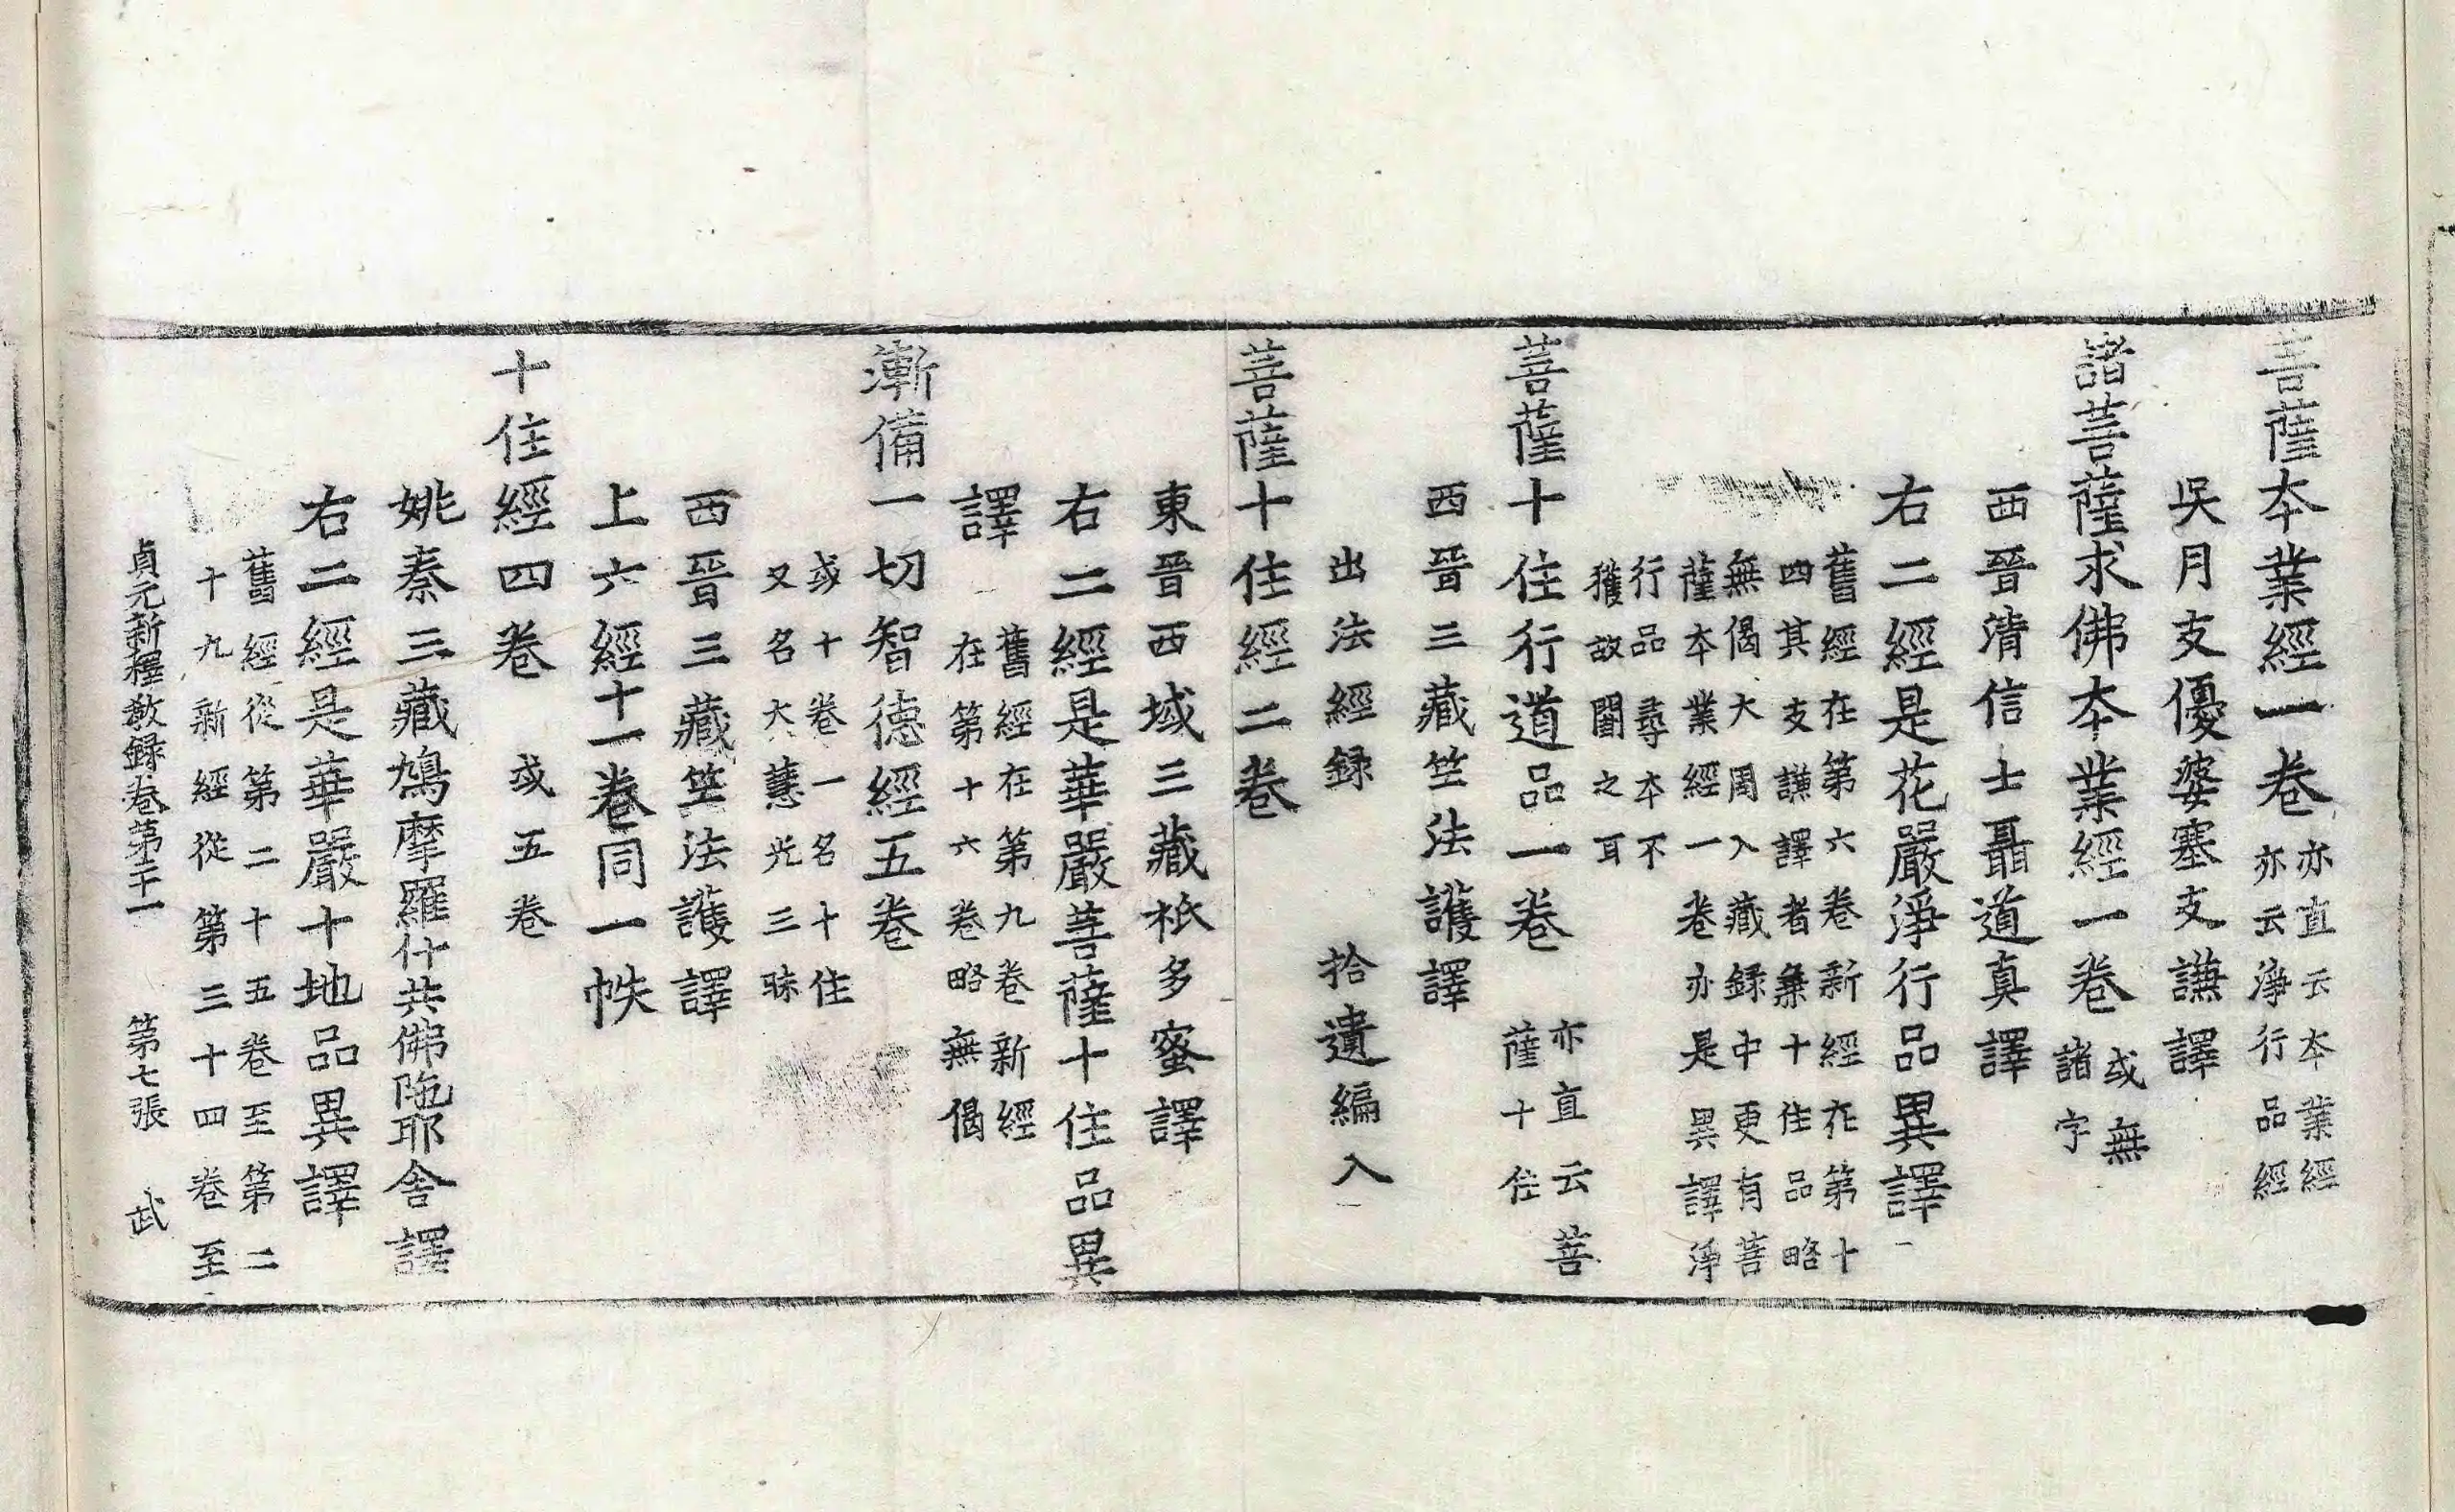 菩薩本業經一卷亦直云本業經亦云淨行品經
吳月支優婆塞支謙譯
諸菩薩求佛本業經一卷或無諸字
西晉清信士聶道真譯
右二經是花嚴淨行品異譯
舊經在第六卷新經在第十
四其支謙譯者兼十住品略
無偈大周入藏録中更有菩
薩本業經一卷亦是異譯淨
行品尋本不
獲故闕之耳
菩薩十住行道品一卷亦直云菩薩十住
西晉三藏竺法護譯
出法經録 拾遺編入
菩薩十住經二卷
東晉西域三藏祇多蜜譯
右二經是華嚴菩薩十住品異
譯舊經在第九卷新經在第十六卷略無偈
漸備一切智德經五卷
或十卷一名十住
又名大慧光三昧
西晉三藏竺法護譯
上六經十一卷同一帙
十住經四卷 或五卷
姚秦三藏鳩摩羅什共佛陁耶舍譯
右二經是華嚴十地品異譯
舊經從第二十五卷至第二
十九新經從第三十四卷至
貞元新釋教録卷第二十一 第七張 武